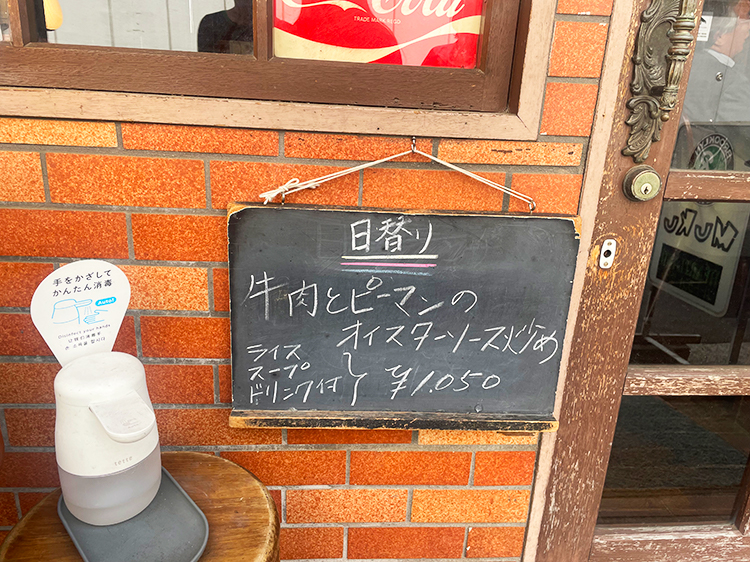 Cola
TRADE MARK REGD
日替り
牛肉とピーマンの
オイスターソース炒め
ライス
スープ
ドリンク付
¥1,050
手をかざして
かんたん消毒
Auto!
Disinfect your hands
tette